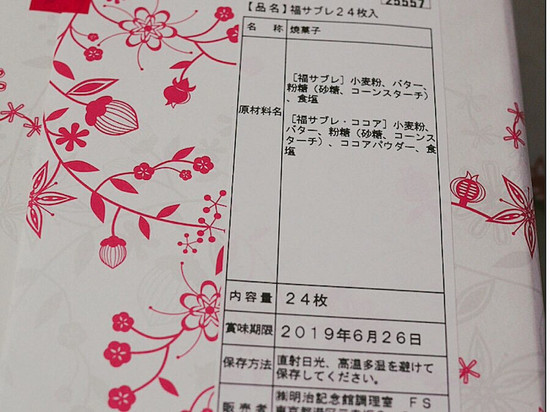 25557
【品名】福サブレ24枚入
名 称 焼菓子
原材料名
［福サブレ］小麦粉、バター、
粉糖（砂糖、コーンスターチ）
、食塩
［福サブレ・ココア］小麦粉、
バター、粉糖（砂糖、コーンス
ターチ）、ココアパウダー、食
塩
内容量 24枚
賞味期限 2019年6月26日
保存方法 直射日光、高温多湿を避けて
保存してください。
販売者 ㈱明治記念館調理室 FS
東京都港区元赤坂